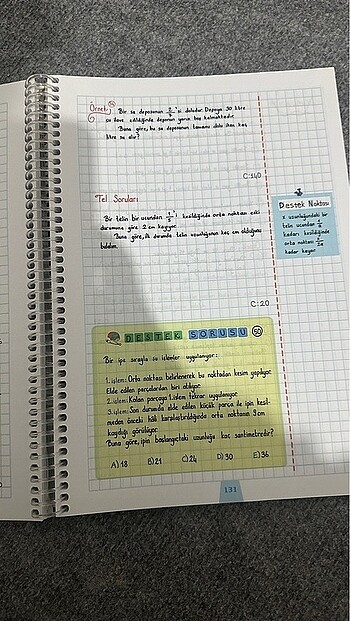 Örnek
Bir su deposunun 'si doludur. Depoya 30 litre
su ilave edildiğinde deponun yarısı boş kalmaktadır.
Buna göre, bu su deposunun tamamı dolu iken kaç
litre su alır?
C:140
Tel Soruları
Bir telin bir ucundan 1/5 'i kesildiğinde orta noktası eski
durumuna göre 2 cm kayıyor.
Buna göre, ilk durumda telin uzunluğunun kaç cm olduğunu
bulalım.
C:20
Destek Noktası
x uzunluğundaki bir
telin ucundan
kadarı kesildiğinde
orta noktası
kadar kayar.
DESTEK SORUSU 50
Bir ipe sırayla şu işlemler uygulanıyor:
1. işlem: Orta noktası belirlenerek bu noktadan kesim yapılıyor.
Elde edilen parçalardan biri atılıyor.
2. işlem: Kalan parçaya 1.işlem tekrar uygulanıyor.
3. işlem: Son durumda elde edilen küçük parça ile ipin kesil-
meden önceki hali karşılaştırıldığında orta noktanın 9 cm
kaydığı görülüyor.
Buna göre, ipin başlangıçtaki uzunluğu kaç santimetredir?
A) 18 B) 21 C) 24 D) 30 E) 36
131